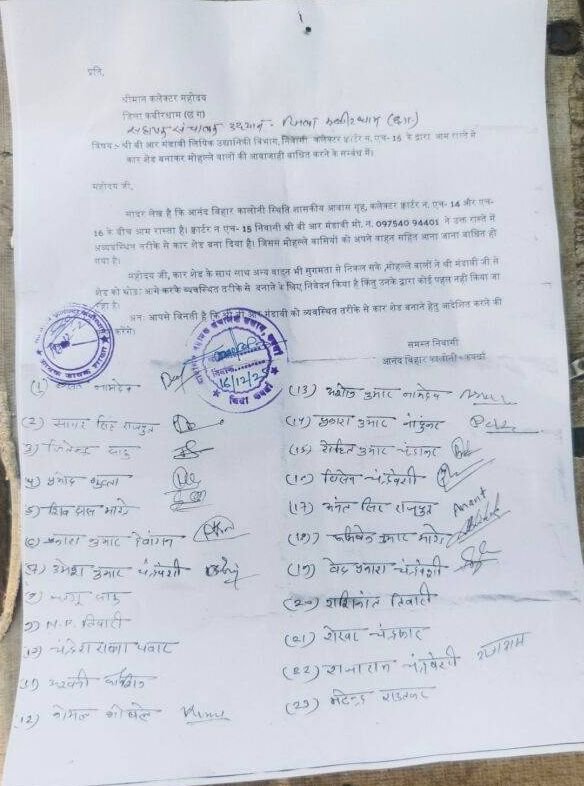 प्रति,
श्रीमान कलेक्टर महोदय
जिला कबीरधाम (छ ग)
सहायक संचालक उद्यान - जिला कबीरधाम (छ.ग.)
विषय :- श्री बी आर मंडावी लिपिक उद्यानिकी विभाग, निवासी कलेक्टर क्वार्टर न. एच- 15 के द्वारा आम रास्ते में
कार शेड बनाकर मोहल्ले वालों की आवाजाही बाधित करने के सम्बंध में।
महोदय जी,
सादर लेख है कि आनंद विहार कालोनी स्थिति शासकीय आवास गृह, कलेक्टर क्वार्टर न. एच- 14 और एच-
16 के बीच आम रास्ता है। क्वार्टर न एच- 15 निवासी श्री बी आर मंडावी मो. न. 097540 94401 ने उक्त रास्ते में
अव्यवस्थित तरीके से कार शेड बना दिया है। जिसम मोहल्ले वासियों को अपने वाहन सहित आना जाना बाधित हो
गया है।
महोदय जी, कार शेड के साथ साथ अन्य वाहन भी सुगमता से निकल सके ,मोहल्ले वालों ने श्री मंडावी जी से
शेड को थोड़ा आगे करके व्यवस्थित तरीके से बनाने के लिए निवेदन किया है किंतु उनके द्वारा कोई पहल नही किया जा
रहा है।
अतः आपसे विनती है कि श्री बी आर मंडावी को व्यवस्थित तरीके से कार शेड बनाने हेतु आदेशित करने की
करेंगे।
समस्त निवासी
आनंद बिहार कालोनी - कवर्धा
दिनांक
16/12/25
(1) नामदेव
(2) सागर सिंह राजपूत
3) जितेन्द्र साहू
4) प्रमोद शुक्ला
5) शिव दास
(6) प्रकाश कुमार देवांगन
(7) उमेश कुमार चंद्रवंशी
8) साहू
9) N.P. तिवारी
10) पवार
(12)
(13) अशोक कुमार नामदेव
(14) प्रकाश कुमार
(15) रोहित कुमार
(16) चंद्रवंशी
(17) अनंत सिंह राजपूत Anant
(18) कुमार
(19) वेद प्रकाश चंद्रवंशी
(20) शशिकांत तिवारी
(21) शेखर चंद्राकर
(22) राजाराम चंद्रवंशी राजाराम
(23)